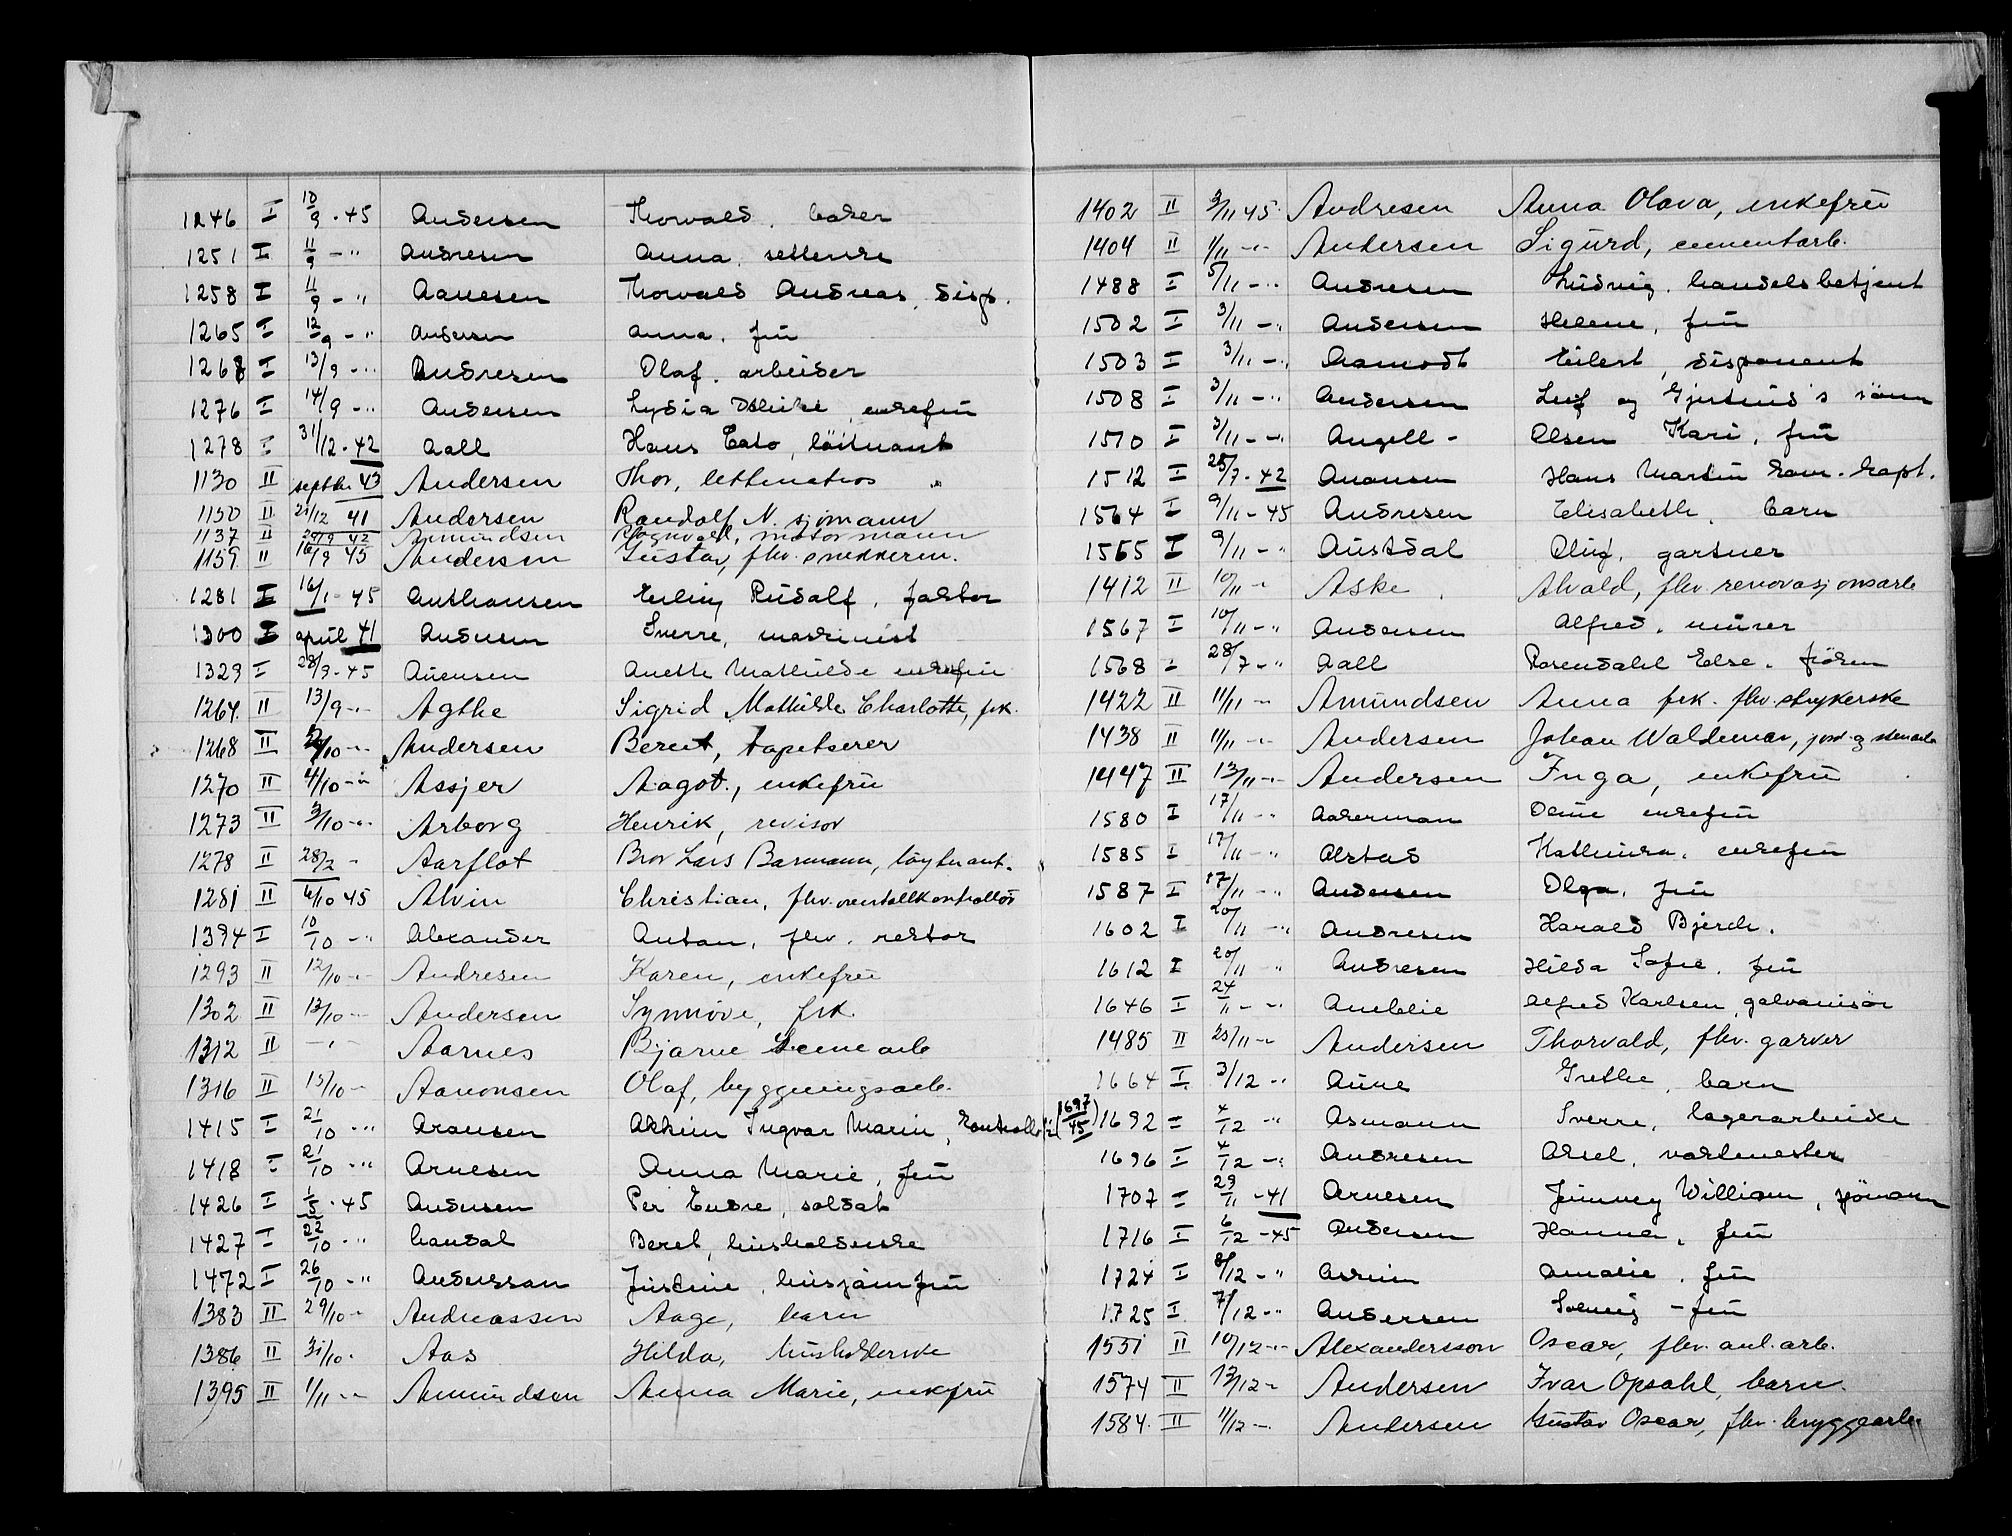 1246 I 10/9 - 45 Andersen Thorvald, baker
1251 I 11/9 - " Andresen Anna, setterske
1258 I 11/9 - " Aanesen Thorvald Andreas, disp.
1265 I 12/9 - " Andersen Anna, fru
1268 I 13/9 - " Andresen Olaf, arbeider
1276 I 14/9 - " Andersen Lydia, enkefru
1278 I 31/12 - 42 Aall Hans Cato, löitnant
1130 II septbr. 43 Andersen Thor, lettmatros
1150 II 21/12 41 Andersen Randolf N. sjömann
1137 II 29/9 42 Amundsen Ragnvald, motormann
1159 II 16/9 45 Andersen Gustav, fhv. snekkerm.
1281 I 16/1 - 45 Anthonsen Erling Rudolf, faktor
1300 I april 41 Andersen Sverre, maskinist
1329 I 28/9 - 45 Auensen Anette Mathilde enkefru
1264 II 13/9 - " Agthe Sigrid Mathilde Charlotte, frk.
1268 II /10 - " Andersen Bernt, tapetserer
1270 II 4/10 - " Assjer Aagot, enkefru
1273 II 3/10 - " Arborg Henrik, revisor
1278 II 28/2 - Aarflot Brov Lars Barmann, löytnant.
1281 II 6/10 45 Alvin Christian, fhv. overtollkontrollör
1394 I 10/10 - " Alexander Anton, fhv. rektor
1293 II 12/10 - " Andresen Karen, enkefru
1302 II 13/10 - " Andersen Synnöve, frk.
1312 II - " - Aarnes Bjarne Scenearb
1316 II 15/10 - " Aanonsen Olaf, bygningsarb.
1415 I 21/10 - " Aronsen Akkim Ingvar Marin, Kontrollör (1697/45)
1418 I 21/10 - " Arnesen Anna Marie, fru
1426 I 1/5 - 45 Andersen Per Endre, soldat
1427 I 22/10 - " Aandal Beret, husholderske
1472 I 26/10 - " Andersson Justine, husjomfru
1383 II 29/10 - " Andreassen Aage, barn
1386 II 31/10 - Aas Hilda, husholderske
1395 II 1/11 - " Amundsen Anna Marie, enkefru
1402 II 3/11 45 Andresen Anna Olava, enkefru
1404 II 1/11 - " Andersen Sigurd, cementarb.
1488 I 5/11 - " Andresen Ludvig, handelsbetjent
1502 I 3/11 - " Andersen Helene, fru
1503 I 3/11 - " Aamodt Eilert, disponent
1508 I 3/11 - " Andersen Leif og Gjertrud's sönn
1510 I 3/11 - " Angell - Olsen Kari, fru
1512 I 25/7 - 42 Anonsen Hans Martin kom. kapt.
1564 I 9/11 - 45 Andresen Elisabeth, barn
1565 I 9/11 - " Austdal Oluf, gartner
1412 II 10/11 - " Aske Alvald, fhv. renovasjonsarb
1567 I 10/11 - " Andersen Alfred, murer
1568 I 28/7 - " Aall Rosendahl Else, fröken
1422 II 11/11 - " Amundsen Anna frk. fhv. strykerske
1438 II 11/11 - " Andersen Johan Waldemar, jord- og stenarb
1447 II 13/11 - " Andersen Inga, enkefru
1580 I 17/11 - " Aakerman enkefru
1585 I 17/11 - " Alstad Kathinka, enkefru
1587 I 17/11 - " Andersen Olga, fru
1602 I 20/11 - " Andresen Harald Bjerck.
1612 I 20/11 - " Andresen Hilda Sofie, fru
1646 I 24/11 - " Amblie Alfred Karlsen, galvanisör
1485 II 25/11 - " Andersen Thorvald, fhv. garver
1664 I 3/12 - " Aune Grethe, barn
1692 I 4/12 - " Asmann Sverre, lagerarbeider
1696 I 4/12 - " Andresen Aksel, vaktmester
1707 I 29/11 - 41 Arnesen Jimmey William, sjömann
1716 I 6/12 - 45 Andersen Hanna, fru
1724 I 8/12 - " Askim Amalie, fru
1725 I 7/12 - " Andersen Solveig - fru
1551 II 10/12 - " Alexandersson Oscar, fhv. anl. arb.
1574 II 13/12 - " Andersen Ivar Opsahl, barn.
1584 II 11/12 - Andersen Gustav Oscar, fhv. bryggearb.